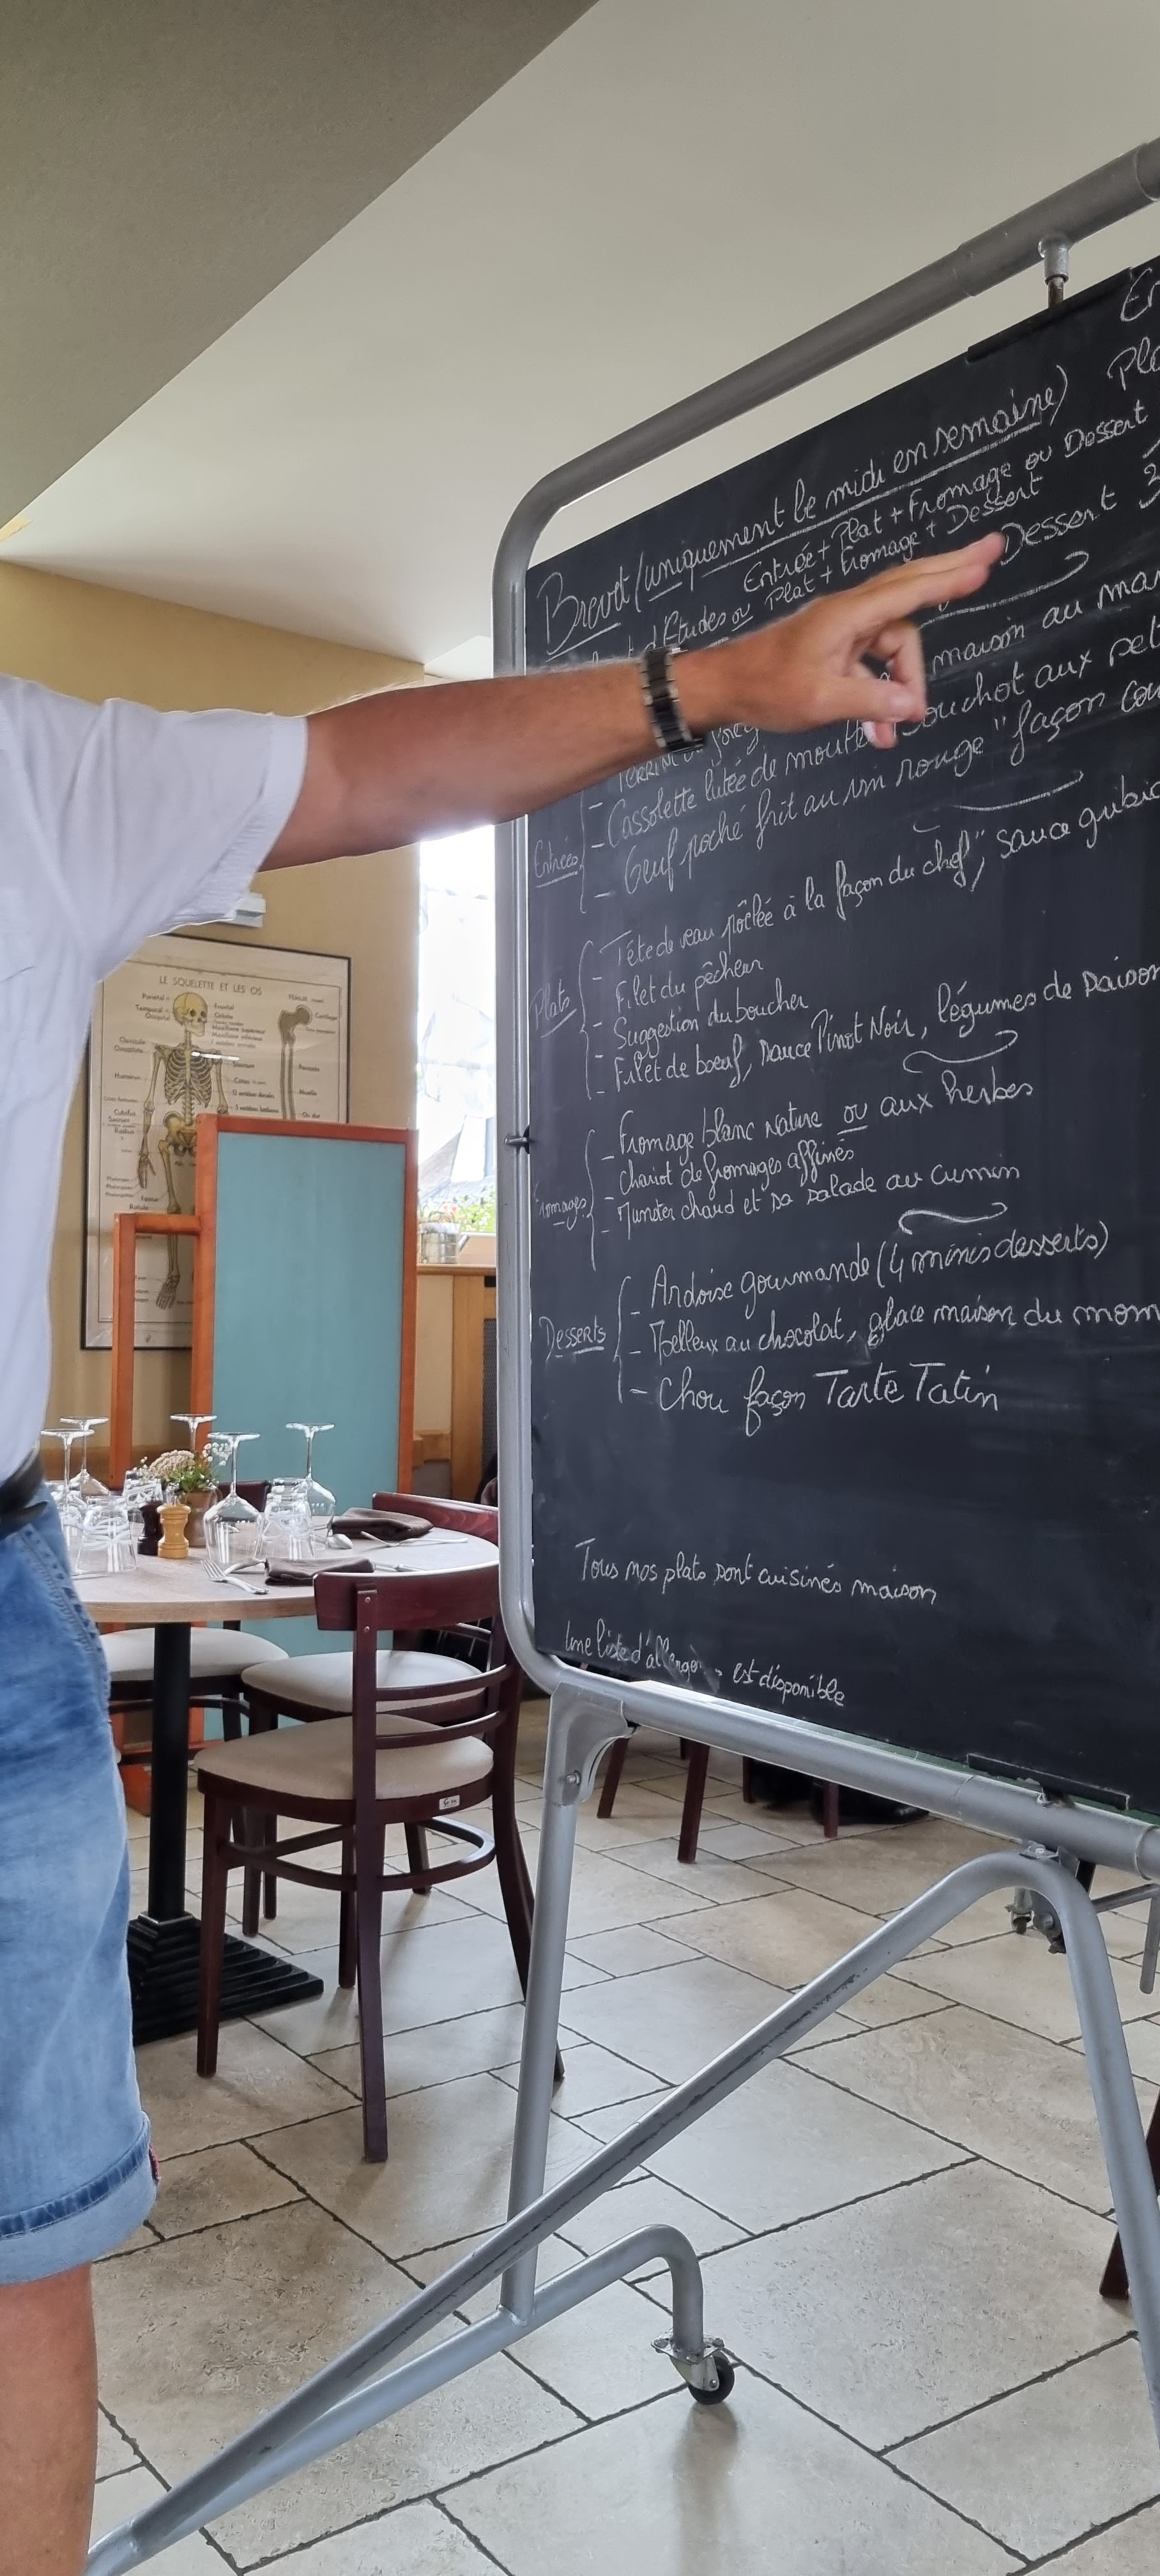 En
Brevet (uniquement le midi en semaine) Pla
Entrée + Plat + Fromage ou Dessert
d'Etudes ou Plat + Fromage + Dessert
Dessert 3
maison au mar
Entrées
- Cassolette lutée de moules bouchot aux pet
- Oeuf poché frit au vin rouge "façon cou
Plats
- Tête de veau poêlée à la façon du chef", sauce gribic
- Filet du pêcheur
- Suggestion du boucher
- Filet de boeuf, sauce Pinot Noir, légumes de saison
Fromages
- Fromage blanc nature ou aux herbes
- Chariot de fromages affinés
- Munster chaud et sa salade au cumin
Desserts
- Ardoise gourmande (4 minis desserts)
- Moelleux au chocolat, glace maison du mom
- Chou façon Tarte Tatin
Tous nos plats sont cuisinés maison
Une liste d'allergè est disponible
LE SQUELETTE ET LES OS